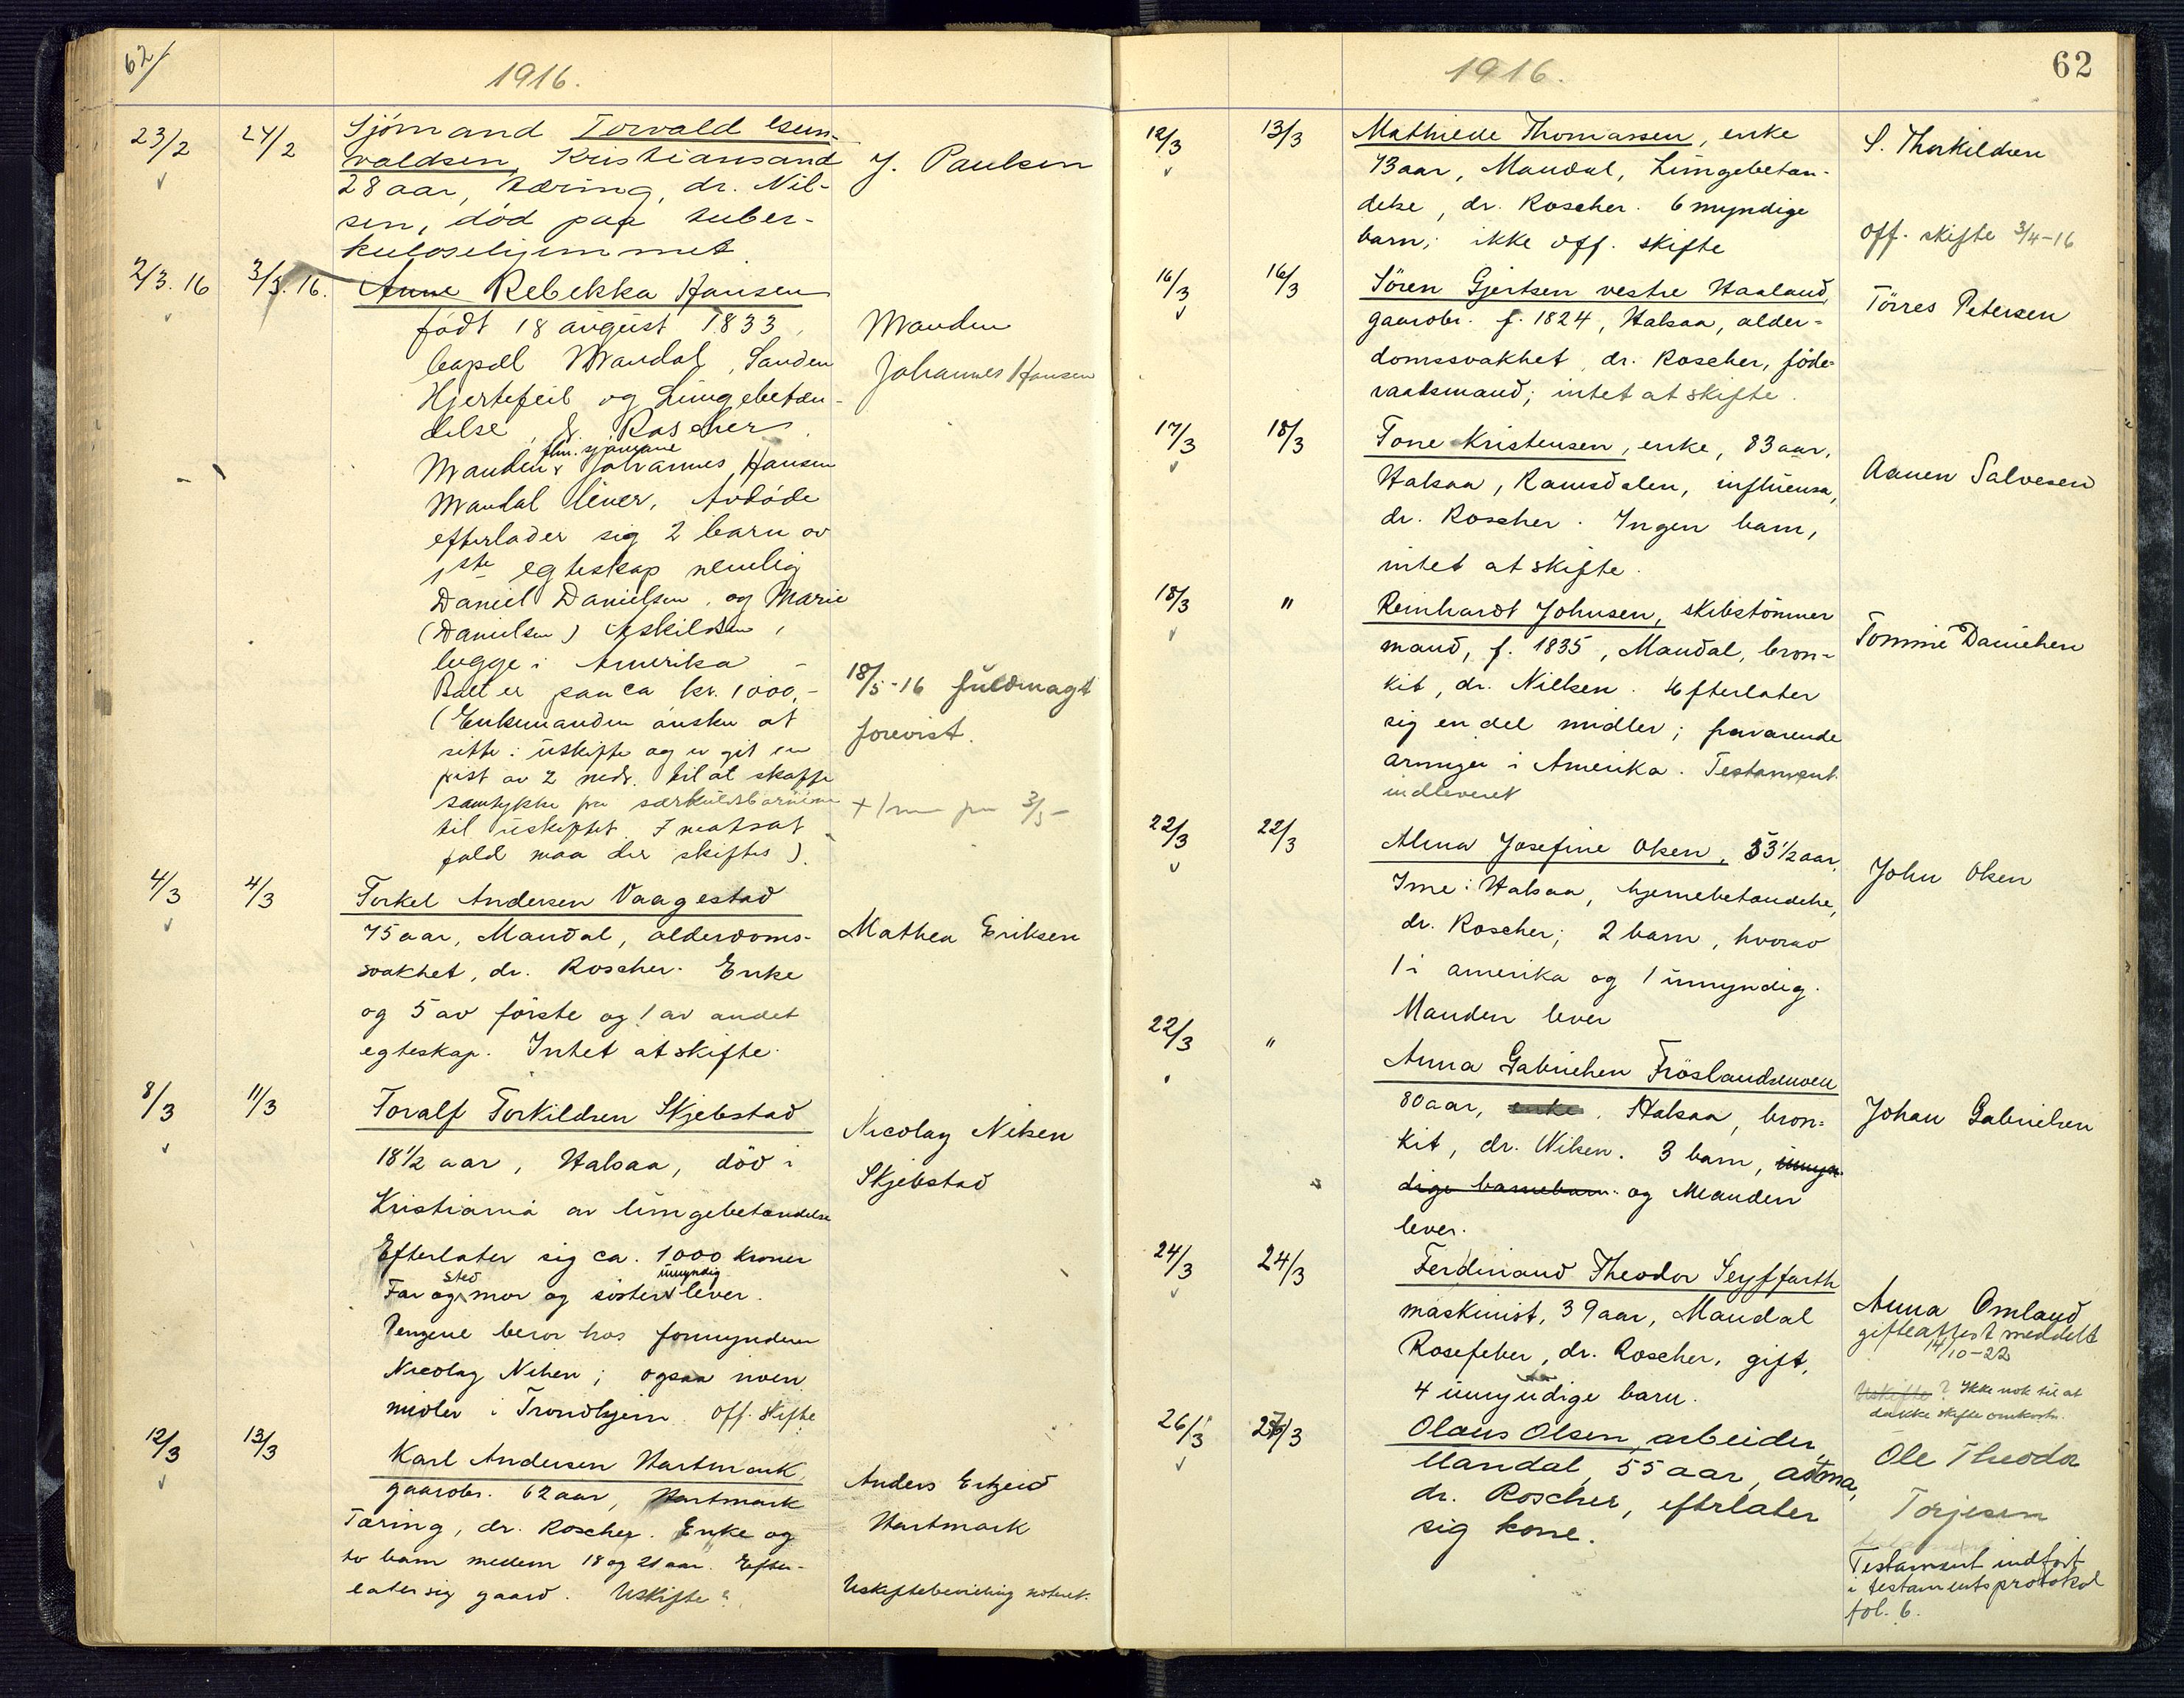 62/
1916.
23/2 24/2 Sjömand Torvald
valdsen, Kristiansand
28 aar, tæring, dr. Nil-
sen, död paa tuber-
kuloseljemmet.
J. Paulsen
2/3. 16 3/3. 16. Anne Rebekka Hansen
födt 18 august 1833,
Mandal, Sanden
Hjertefeil og Lungebetæn-
delse, Roscher.
fhv. sjömand
Manden Johannes Hansen
Mandal lever, Avdöde
efterlader sig 2 barn av
1ste egteskap nemlig
Daniel Danielsen, og Marie
(Danielsen) Askildsen,
begge i Amerika -
Boet er paa ca kr. 1000,-
(Enkemanden önsker at
sitte i uskifte og er git en
frist av 2 mdr. til at skaffe
samtykke fra særkuldsbarnene
til uskiftet. I motsat
fald maa der skiftes).
Manden
Johannes Hansen
18/5-16 fuldmagt
forevist.
4/3 4/3 Torkel Andersen Vaagestad
75 aar, Mandal, alderdoms-
svakhet, dr. Roscher. Enke
og 5 av förste og 1 av andet
egteskap. Intet at skifte.
Mathea Eriksen
8/3 11/3 Toralf Torkildsen Skjebstad
18 1/2 aar, Halsaa, död i
Kristiania av lungebetændelse
Efterlater sig ca. 1000 kroner
sted umyndig
Far og mor og söster lever.
Pengene beror hos formynderen
Nicolay Nilsen; ogsaa noen
midler i Trondhjem. Off. skifte
Nicolay Nilsen
Skjebstad
12/3 13/3 Karl Andersen Hartmark,
gaardbr. 62 aar, Hartmark
Tæring, dr. Roscher. Enke og
to barn mellem 18 og 21 aar. Efter-
later sig gaard. Uskifte?
Anders
Hartmark
Uskiftebevilling noteret.
62
1916.
12/3 13/3 Mathilde Thomassen, enke
73 aar, Mandal, Lungebetæn-
delse, dr. Roscher. 6 myndige
barn; ikke off. skifte
S. Thorkildsen
Off. skifte 3/4-16
16/3 16/3 Sören Gjertsen vestre Haaland,
gaardbr. f. 1824, Halsaa, alder-
domssvakhet, dr. Roscher, föde-
raadsmand; intet at skifte.
Törres Petersen
17/3 18/3 Tone Kristensen, enke, 83 aar,
Halsaa, Ramsdalen, influensa,
dr. Roscher. Ingen barn,
intet at skifte.
Aanen Salvesen
18/3 " Reinhardt Johnsen, skibstömmer
mand, f. 1835, Mandal, bron-
kit, dr. Nilsen. Efterlater
sig en del midler; fraværende
arvinger i Amerika. Testament
indleveret
Tomine Danielsen
22/3 22/3 Alma Josefine Olsen, 53 1/2 aar,
Ime i Halsaa, hjernebetændelse,
dr. Roscher; 2 barn, hvorav
1 i amerika og 1 umyndig.
Manden lever
John Olsen
22/3 " Anna Gabrielsen Fröslandsmoen
80 aar, enke. Halsaa, bron-
kit, dr. Nilsen. 3 barn, umyn-
dige barnebarn. og Manden
lever.
Johan Gabrielsen
24/3 24/3 Ferdinand Theodor Seyffarth
maskinist, 39 aar, Mandal
Rosefeber, dr. Roscher, gift,
4 umyndige barn.
Anna Omland
gifteattest meddelt
14/10-22
Uskifte? Ikke nok til at
dække skifte omkostn.
26/3 27/3 Olaus Olsen, arbeider,
Mandal, 55 aar, astma,
dr. Roscher, efterlater
sig kone.
Ole Theodor
Torjesen
Testament indfört
i testamentsprotokol
fol. 6.